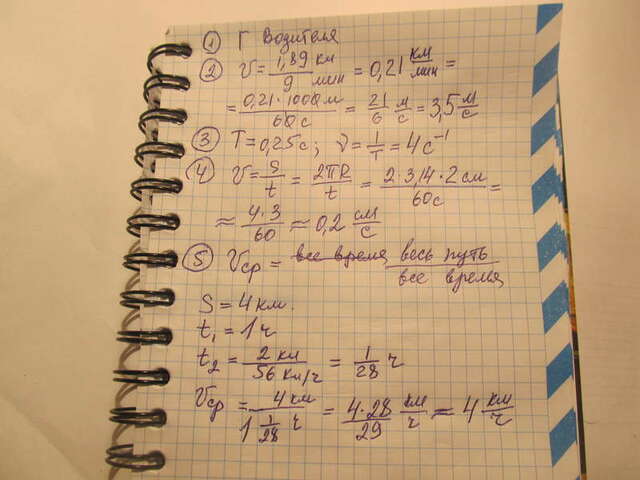 ① Г Водителя
② v = 1,89 км / 9 мин = 0,21 км/мин =
= 0,21 · 1000 м / 60 с = 21/6 м/с = 3,5 м/с
③ T = 0,25 с; ν = 1/T = 4 с⁻¹
④ v = S/t = 2πR/t = 2 · 3,14 · 2 см / 60 с =
≈ 4 · 3 / 60 ≈ 0,2 см/с
⑤ Vср = все время весь путь / все время
S = 4 км.
t₁ = 1 ч
t₂ = 2 км / 56 км/ч = 1/28 ч
Vср = 4 км / 1 1/28 ч = 4 · 28 / 29 км/ч ≈ 4 км/ч